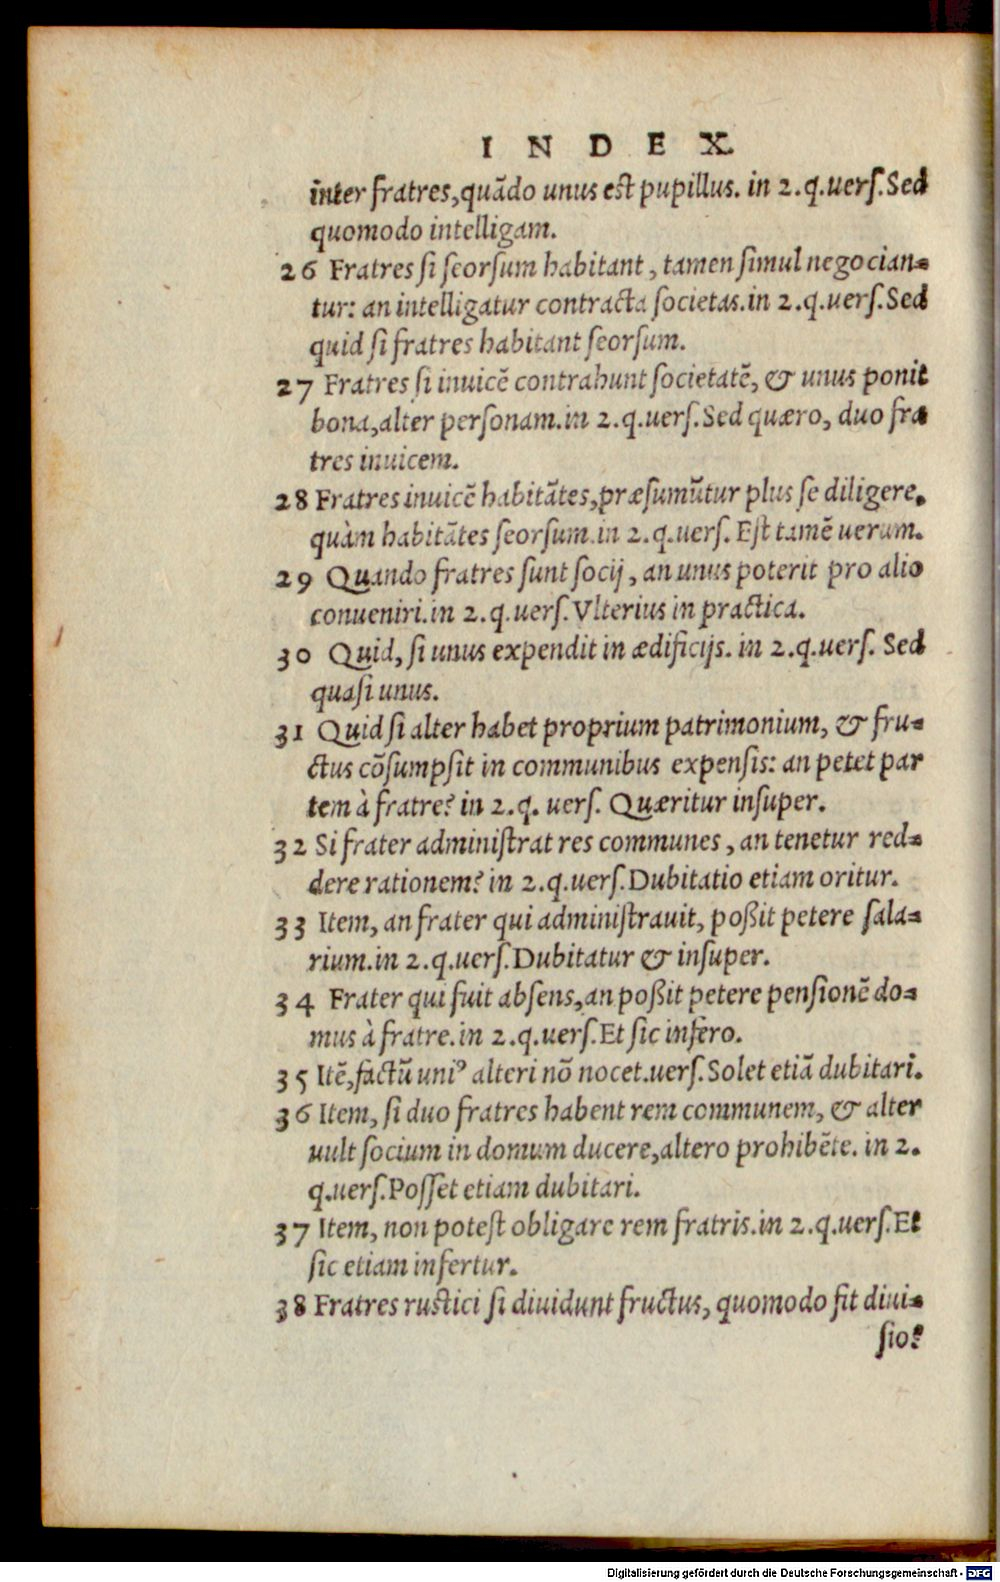 INDEX.
inter fratres, quãdo unus est pupillus. in 2.q.uerſ.Sed
quomodo intelligam.
26 Fratres ſi ſeorſum habitant, tamen ſimul negocian=
tur: an intelligatur contracta ſocietas.in 2.q.uerſ.Sed
quid ſi fratres habitant ſeorſum.
27 Fratres ſi inuicẽ contrahunt ſocietatẽ, & unus ponit
bona,alter perſonam.in 2.q.uerſ.Sed quæro, duo fra
tres inuicem.
28 Fratres inuicẽ habitãtes,præſumũtur plus ſe diligere,
quàm habitãtes ſeorſum.in 2.q.uerſ. Eſt tamẽ uerum.
29 Quando fratres ſunt ſocij, an unus poterit pro alio
conueniri.in 2.q.uerſ.Vlterius in practica.
30 Quid, ſi unus expendit in ædificijs. in 2.q.uerſ. Sed
quaſi unus.
31 Quid ſi alter habet proprium patrimonium, & fru=
ctus cõſumpſit in communibus expenſis: an petet par
tem à fratre? in 2.q. uerſ. Quæritur inſuper.
32 Si frater adminiſtrat res communes, an tenetur red=
dere rationem? in 2.q.uerſ.Dubitatio etiam oritur.
33 Item, an frater qui adminiſtrauit, poßit petere ſala=
rium.in 2.q.uerſ.Dubitatur & inſuper.
34 Frater qui fuit abſens,an poßit petere penſionẽ do=
mus à fratre.in 2.q.uerſ.Et ſic infero.
35 Itẽ,factũ uniꝰ alteri nõ nocet.uerſ.Solet etiã dubitari.
36 Item, ſi duo fratres habent rem communem, & alter
uult ſocium in domum ducere,altero prohibẽte. in 2.
q.uerſ.Poſſet etiam dubitari.
37 Item, non poteſt obligare rem fratris.in 2.q.uerſ.Et
ſic etiam infertur.
38 Fratres ruſtici ſi diuidunt fructus, quomodo fit diui=
ſio?
Digitalisierung gefördert durch die Deutsche Forschungsgemeinschaft - DFG